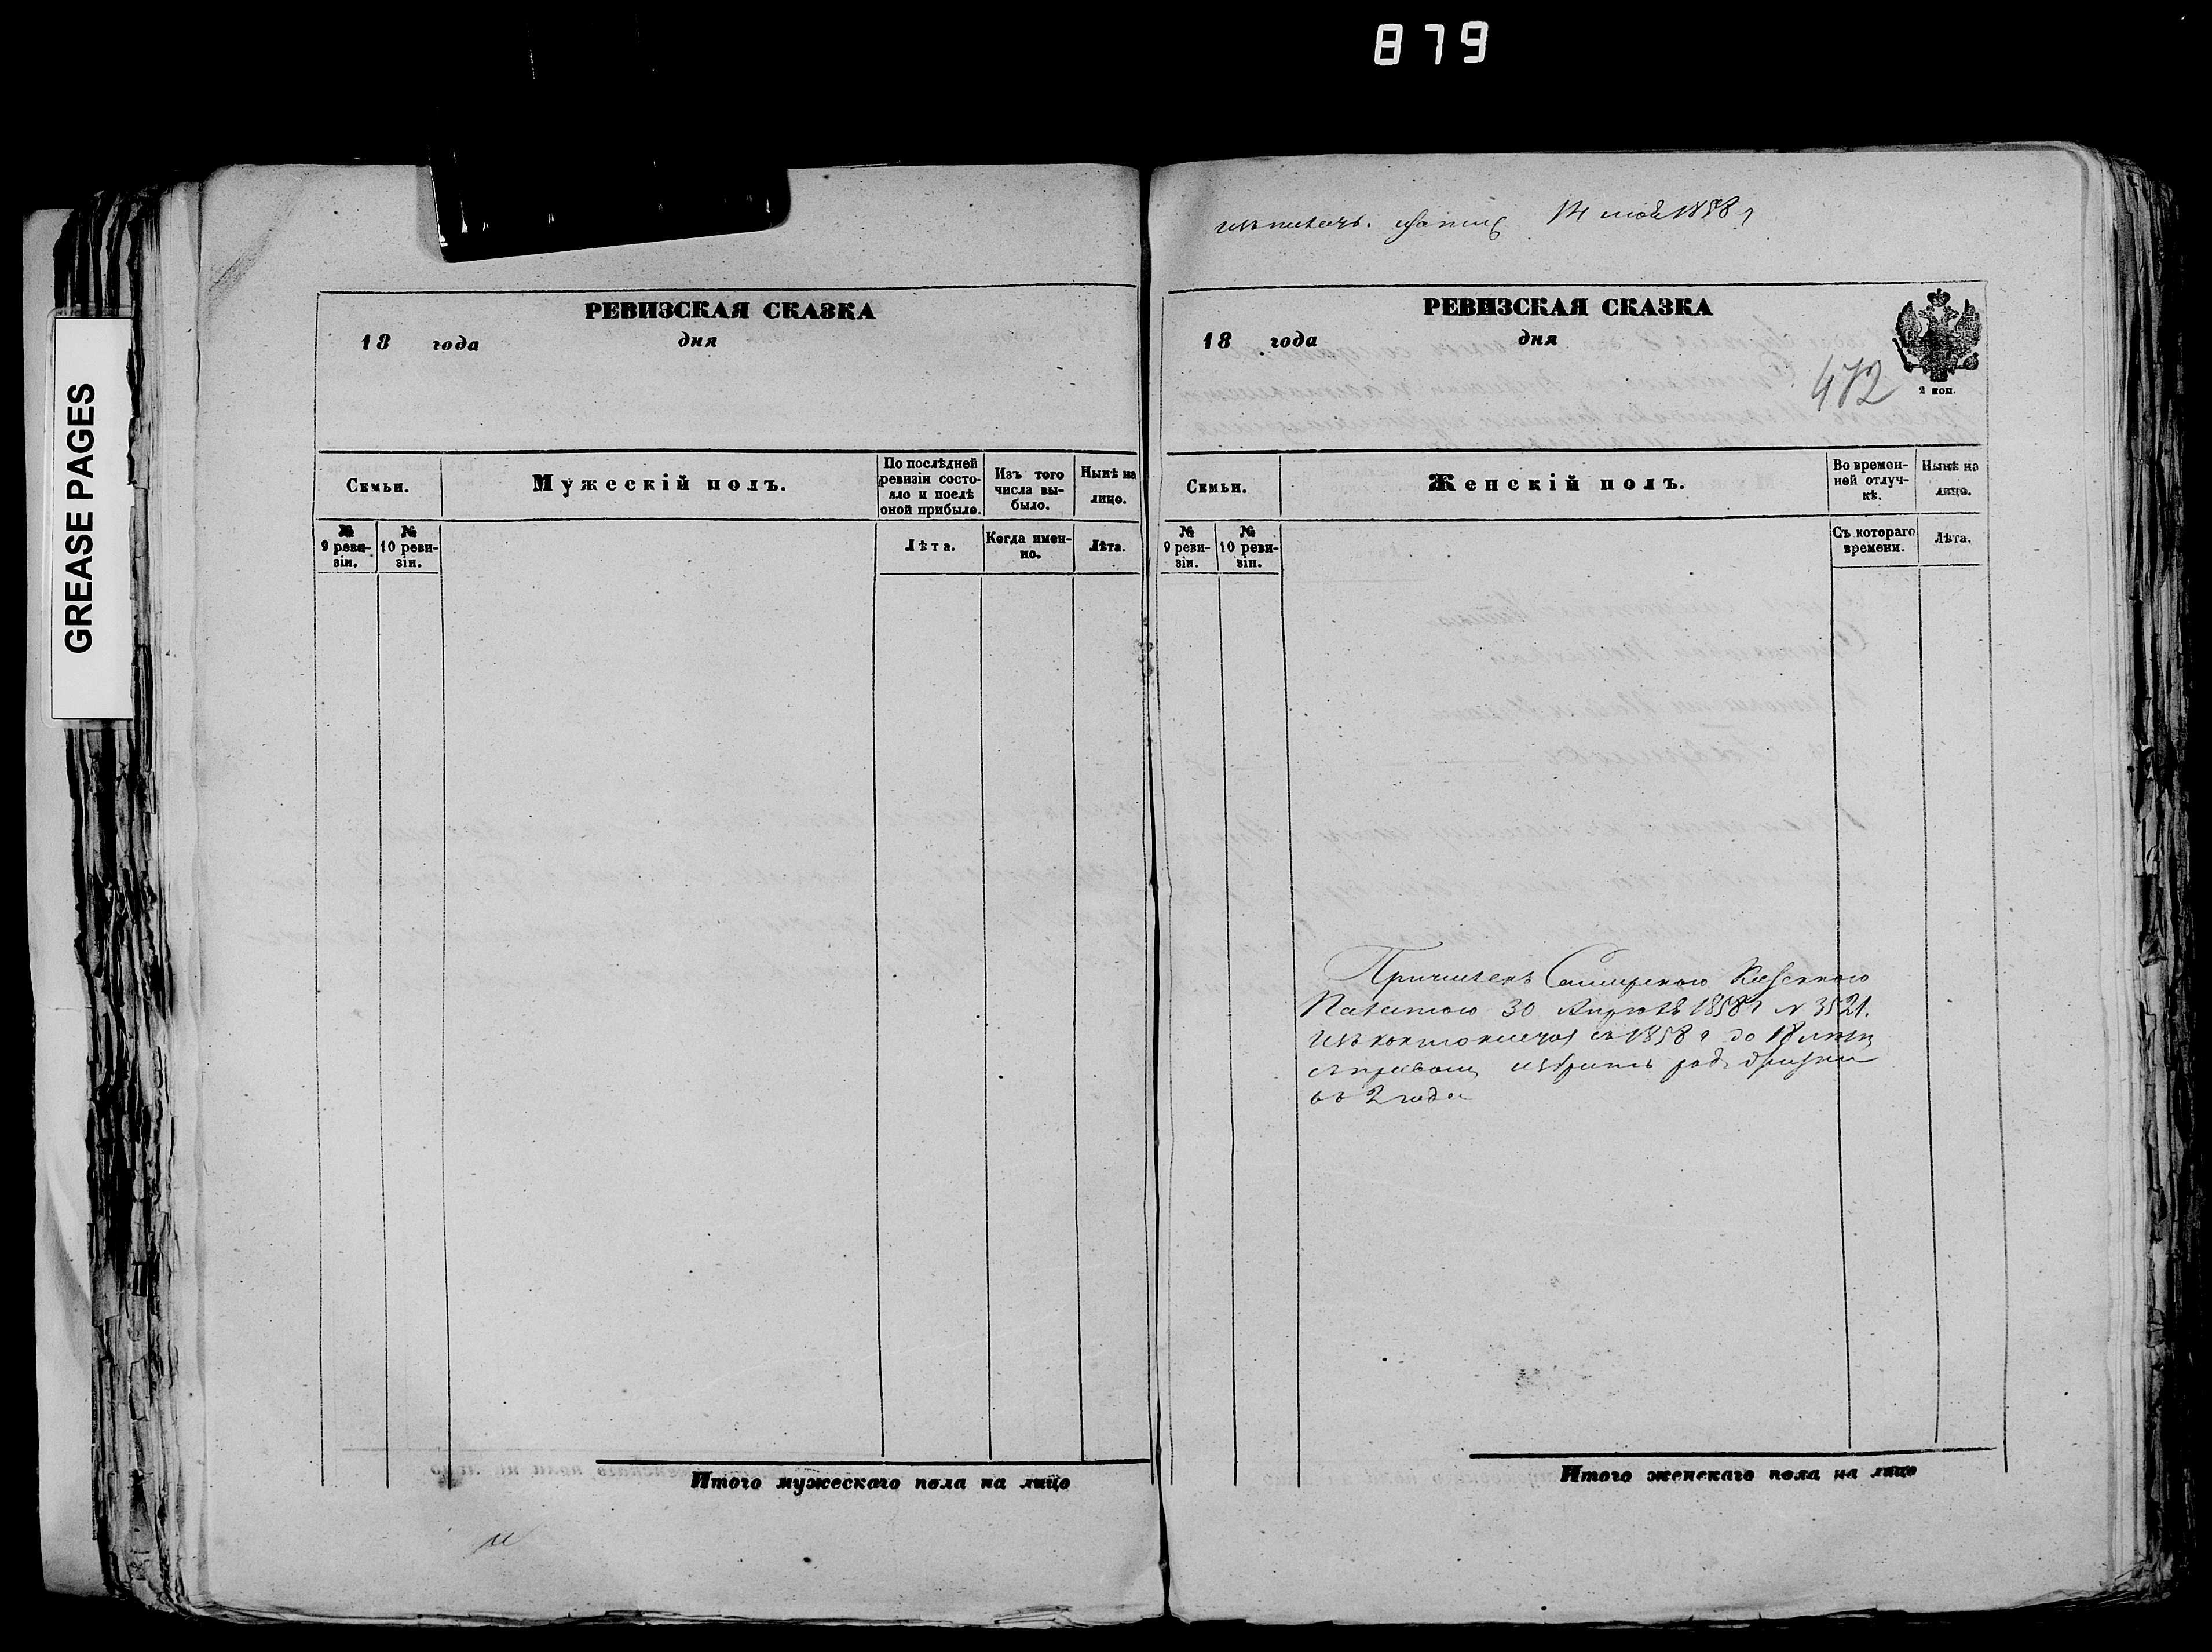 879
GREASE PAGES
РЕВИЗСКАЯ СКАЗКА
18 года дня
Семьи.
Мужескій полъ.
По послѣдней ревизіи состояло и послѣ оной прибыло.
Изъ того числа выбыло.
Нынѣ на лицо.
№ 9 ревизіи.
№ 10 ревизіи.
Лѣта.
Когда именно.
Лѣта.
Итого мужескаго пола на лицо
14 1858 г
РЕВИЗСКАЯ СКАЗКА
18 года дня
472
2 коп.
Семьи.
Женскій полъ.
Во временной отлучкѣ.
Нынѣ на лицо.
№ 9 ревизіи.
№ 10 ревизіи.
Съ котораго времени.
Лѣта.
Причисленъ Казенною
Палатою 30 Апрѣля 1858 г № 3521.
съ 1858 г до
избрать родъ жизни
въ 2 года
Итого женскаго пола на лицо